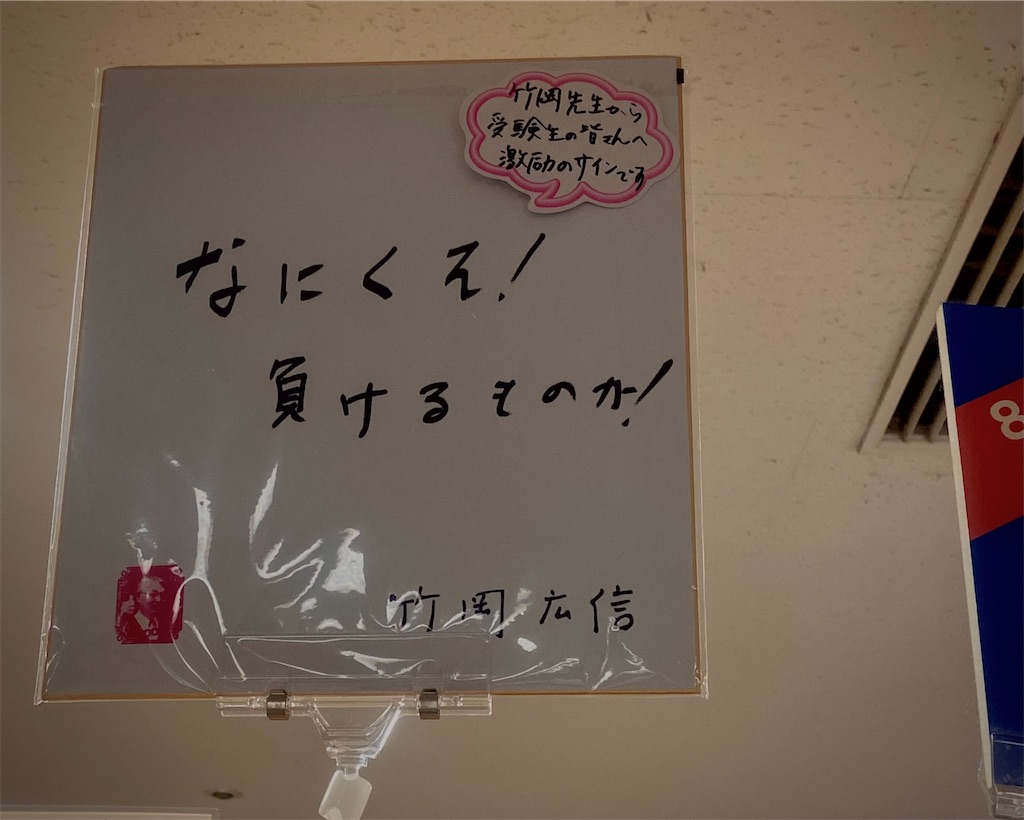 竹岡先生から
受験生の皆さんへ
激励のサインです
なにくそ!
負けるものか!
竹岡広信
8